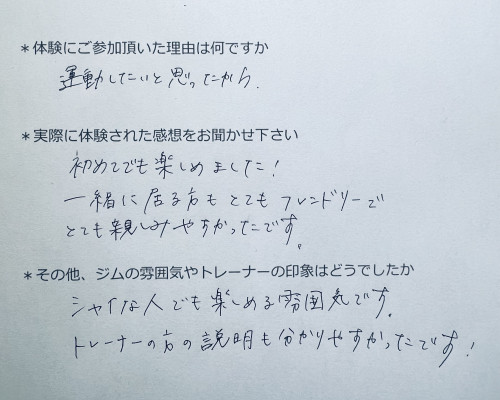 *体験にご参加頂いた理由は何ですか
運動したいと思ったから.
*実際に体験された感想をお聞かせ下さい
初めてでも楽しめました!
一緒に居る方もとてもフレンドリーで
とても親しみやすかったです。
*その他、ジムの雰囲気やトレーナーの印象はどうでしたか
シャイな人でも楽しめる雰囲気です.
トレーナーの方の説明も分かりやすかったです!